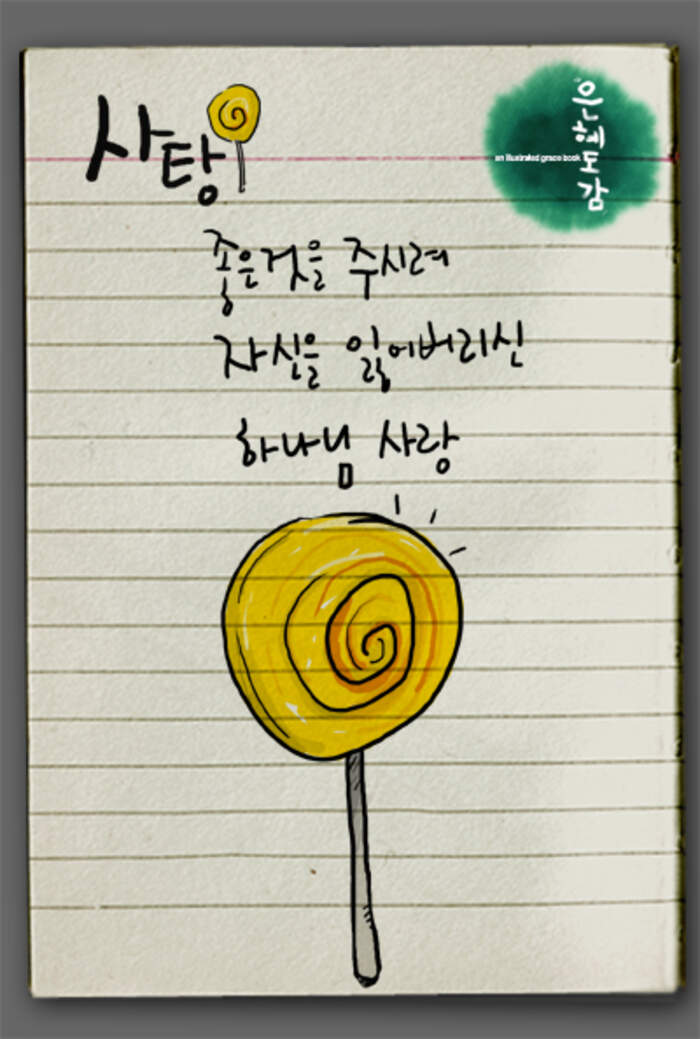 사탕
은혜도감
an illustrated grace book
좋은것을 주시려
자신을 잃어버리신
하나님 사랑